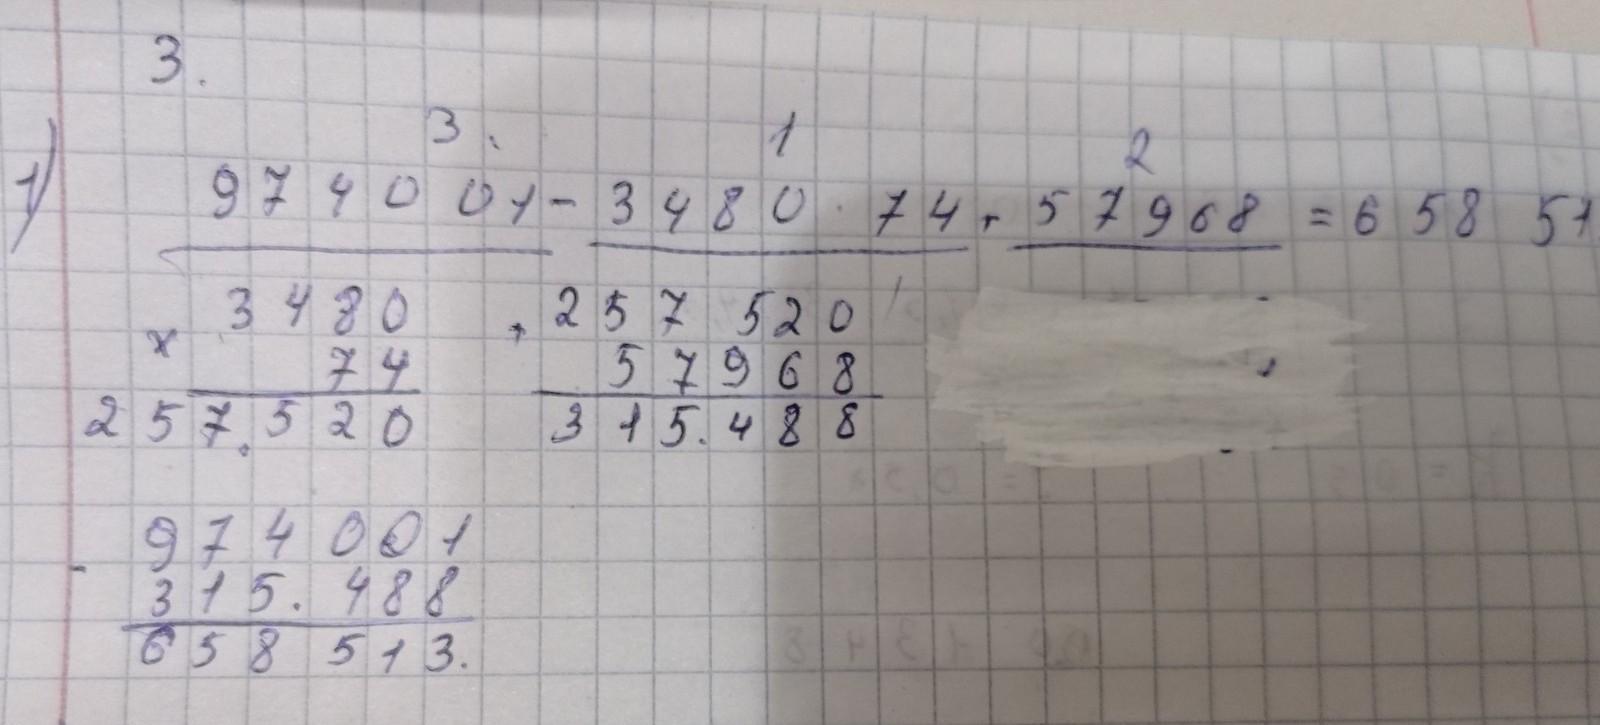 3.
3. 1 2
1) 974001 - 3480 · 74 + 57968 = 658 51
3480 + 257 520
× 74 57968
257.520 315.488
974 001
- 315.488
658 513.